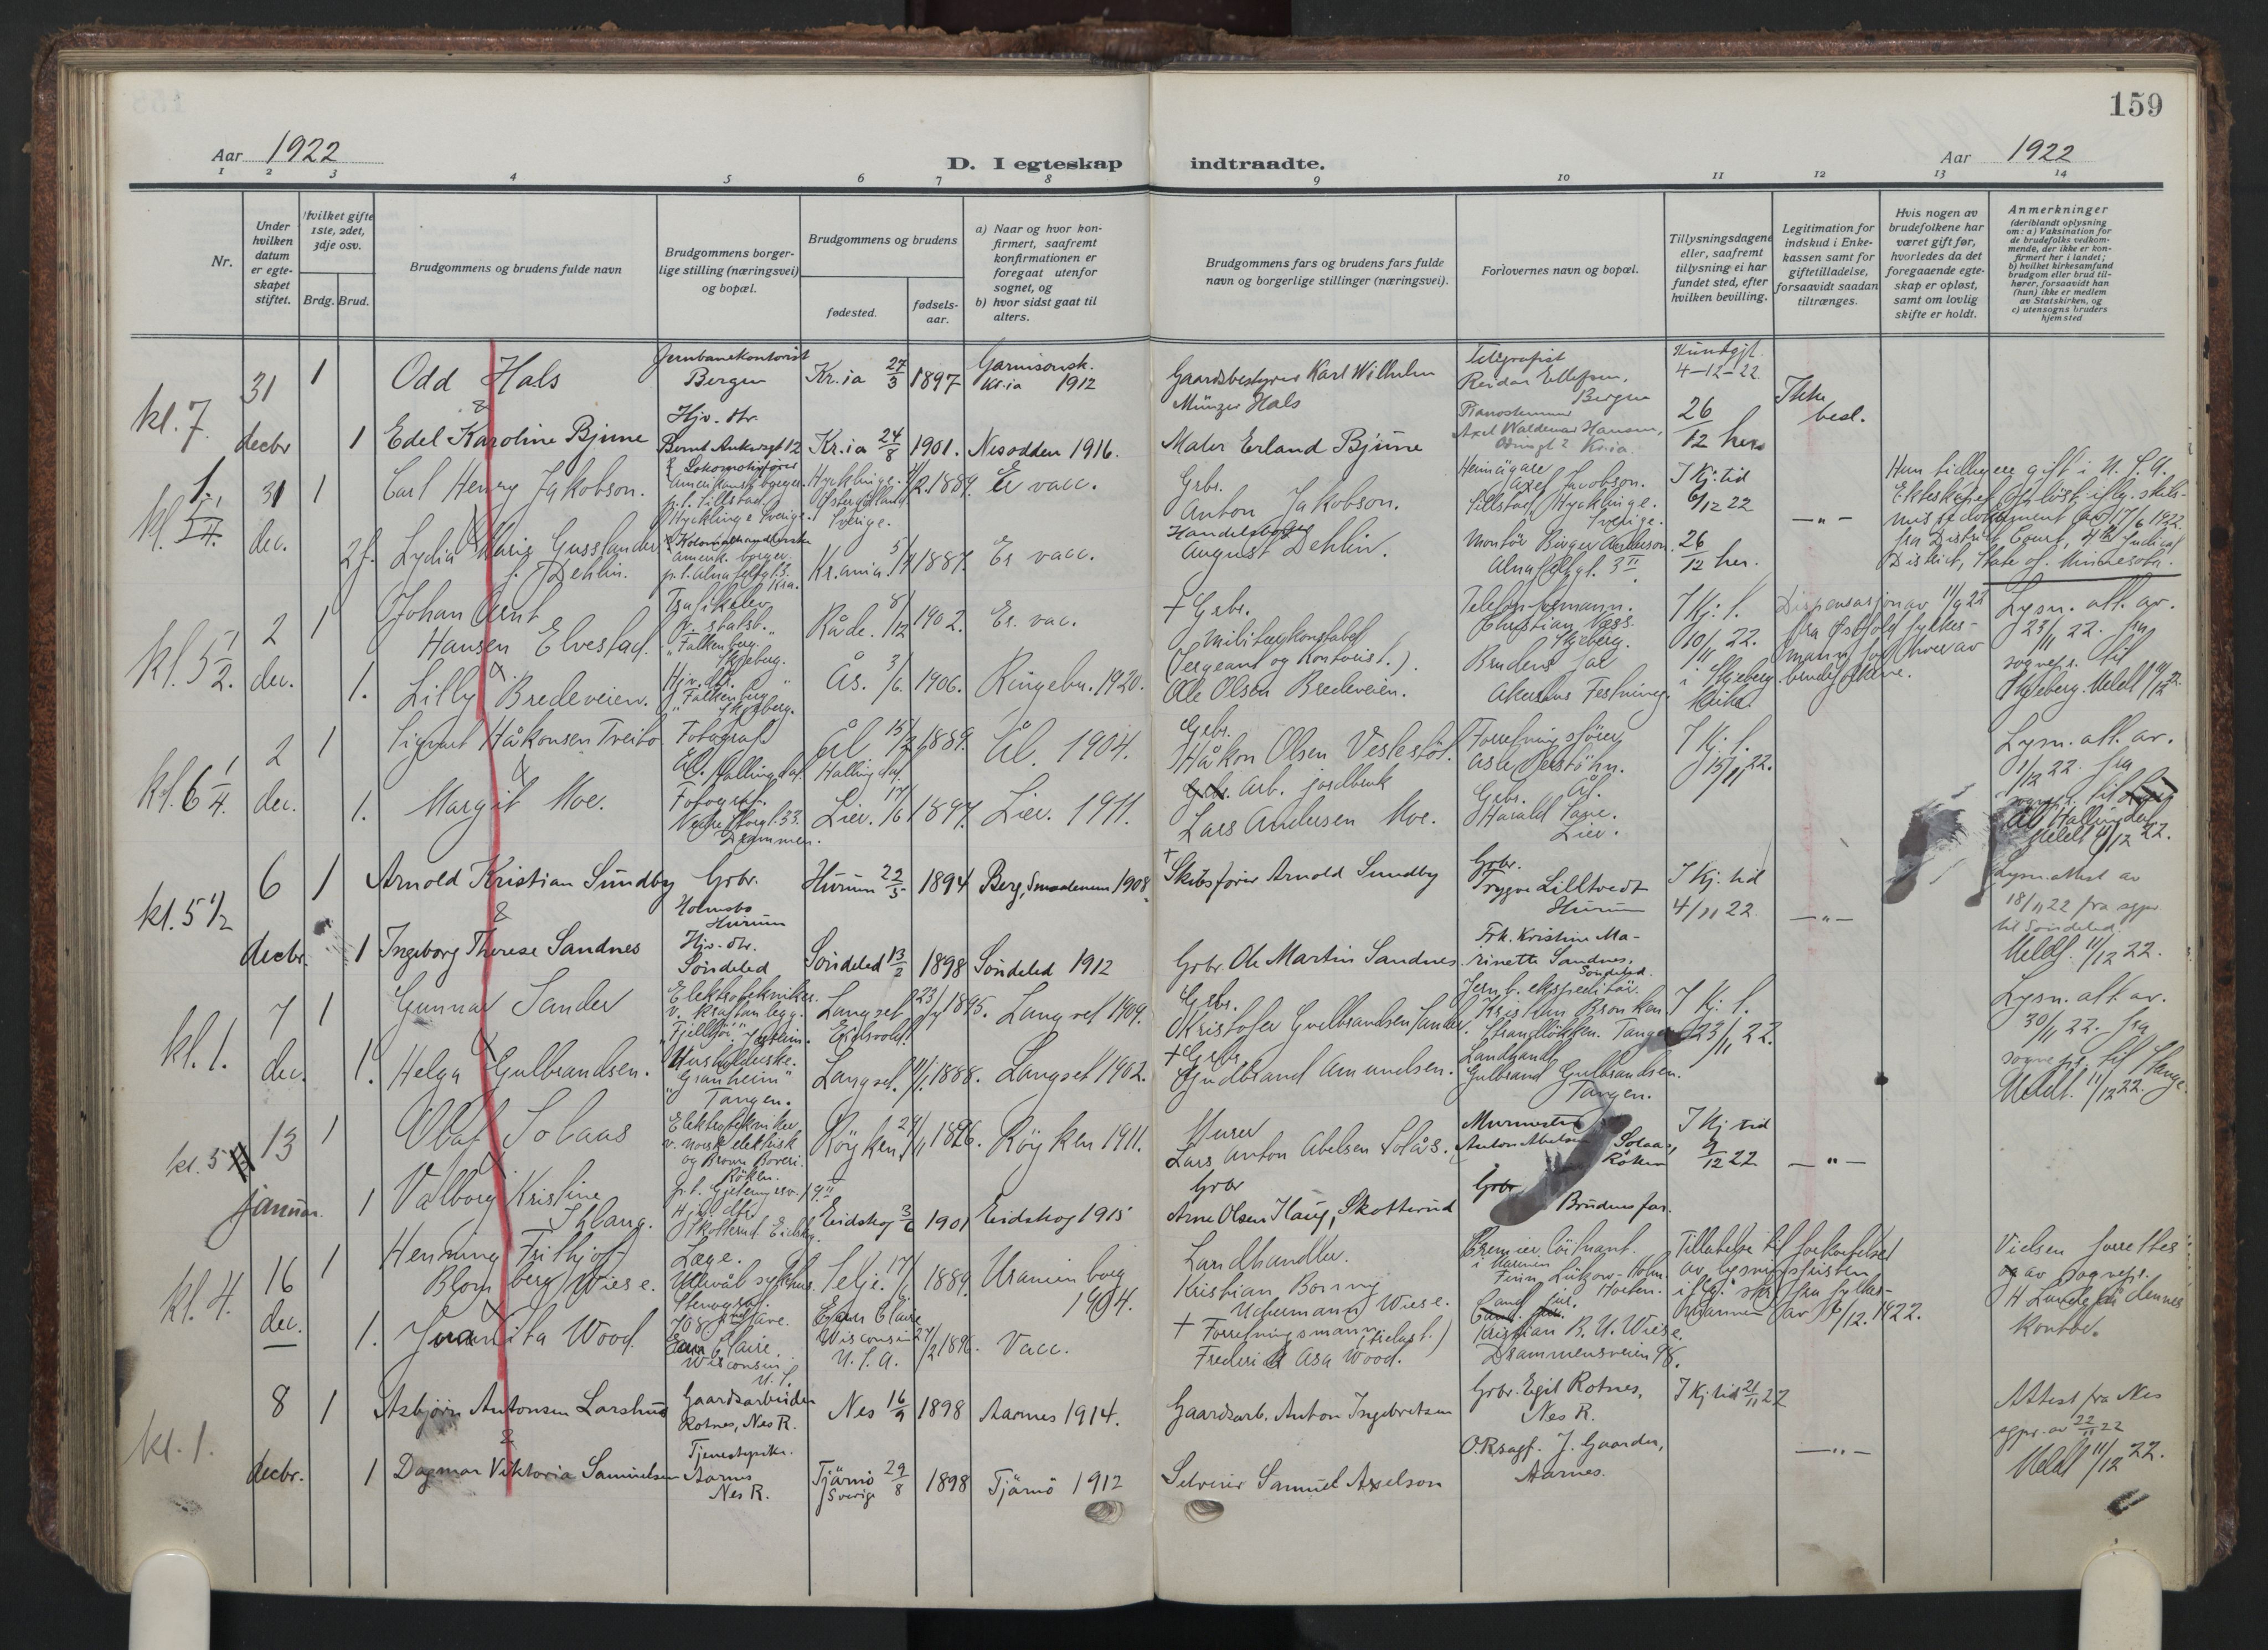 159
Aar 1922
D. I egteskap indtraadte.
Aar 1922
1 2 3 4 5 6 7 8 9 10 11 12 13 14
Nr.
Under hvilken datum er egteskapet stiftet.
Hvilket gifte 1ste, 2det, 3dje osv.
Brdg. Brud.
Brudgommens og brudens fulde navn
Brudgommens borgerlige stilling (næringsvei) og bopæl.
Brudgommens og brudens
fødested.
fødselsaar.
a) Naar og hvor konfirmert, saafremt konfirmationen er foregaat utenfor sognet, og
b) hvor sidst gaat til alters.
Brudgommens fars og brudens fars fulde navn og borgerlige stillinger (næringsvei).
Forlovernes navn og bopæl.
Tillysningsdagene eller, saafremt tillysning ei har fundet sted, efter hvilken bevilling.
Legitimation for indskud i Enkekassen samt for giftetilladelse, forsaavidt saadan tiltrænges.
Hvis nogen av brudefolkene har været gift før, hvorledes da det foregaaende egteskap er opløst, samt om lovlig skifte er holdt.
Anmerkninger
(deriblandt oplysning om: a) Vaksination for de brudefolks vedkommende, der ikke er konfirmert her i landet;
b) hvilket kirkesamfund brudgom eller brud tilhører, forsaavidt han (hun) ikke er medlem av Statskirken, og
c) utensogns bruders hjemsted
kl. 7. 31 decbr
1 Odd Hals
Jernbanekontorist Bergen
Kr.ia 27/3 1897
Garnisonsk. Kr.ia 1912
Gaardsbestyrer Karl Wilhelm Münzer Hals
Telegrafist Reidar Ellefsen, Bergen
Kundgjt. 4-12-22
Ikke besl.
&
1 Edel Karoline Bjune
Hjv. dtr. Bernt Ankersgt 12
Kr.ia 24/8 1901.
Nesodden 1916.
Maler Erland Bjune
Pianostemmer Axel Waldemar Hansen, Kr.ia.
26/12 her
kl. 31 dec.
1 Carl Henry Jakobson.
Lokomotivfører amerikansk borger. p.t. Tillstad Hycklinge Sverige.
Hycklinge. Østergøtland Sverige. 1889.
Er vacc.
Grbr. Anton Jakobson.
Heimägare Axel Jacobson. Tillstad, Hycklinge. Sverige.
I Kj. tid 6/12 22
— " —
Hun tidligere gift i U.S.A.
Ekteskapet opløst iflg. skilsmissedokument av 17/6 1922.
fra District Court, 4th Judical District, State of Minnesota.
2 f. Lydia Marie Gusslander f. Dehlin.
Kolonialhandlerske amerik. borger. p.t. Alnafetgt. 3. Kra.
Kr.ania. 1887.
Er vacc.
Handelsborger August Dehlin.
Montør Birger Anderson. Alnafetgt. 3 II.
26/12 her.
kl. 5 1/2. 2 dec.
1 Johan Arnt Hansen Elvestad.
Trafikelev v. statsb. "Falkenberg" Skjeberg.
Råde. 8/12 1902.
Er. vac.
+ Grbr.
Militærkonstabel (Sergeant og Kontorist.).
Telefonformann. Christian Næss. Skjeberg.
I Kj: t. 10/11 22. i Skjeberg Kirke
Dispensasjon av 11/9 22 fra Østfold fylkesmann for hver av brudefolkene.
Lysn. att. av. 23/11 22. fra sognepr. til Skjeberg. Meldt 11/12 22.
&
1. Lilly Bredeveien.
Hjv. dt. "Falkenberg" Skjeberg.
Ås. 3/6. 1906.
Ringebu. 1920.
Ole Olsen Bredeveien.
Brudens far Akershus Festning.
kl. 6 1/4. 2 dec.
1 Sigvart Håkonsen Treito
Fotograf Ål. Hallingdal.
Ål Hallingdal. 15/2 1889.
Ål. 1904.
Grbr. Håkon Olsen Veslestöl.
Forretningsfører Asle Ål.
I Kj. t. 15/11 22.
Lysn. att. av. 1/12 22. fra sognepr. til Ål Hallingdal Meldt 11/12 22.
&
1. Margit Moe.
Fotograf. Nedre Storgt. 33. Drammen.
Lier. 17/6 1897.
Lier. 1911.
Arb. jordbruk Lars Andersen Moe.
Grbr. Harald Lier.
kl. 5 1/2 6 decbr.
1 Arnold Kristian Sundby
Grbr. Holmsbo Hurum
Hurum 22/5 1894
Berg, Smaalenene 1908
+ Skibsfører Arnold Sundby
Grbr. Trygve Lilltvedt Hurum
I Kj. tid 4/11 22
— " —
Lysn. attest av 18/11 22 fra sgpr. til Søndeled. Meldt. 11/12 22.
&
1 Ingeborg Therese Sandnes
Hjv. dtr. Søndeled
Søndeled 13/2 1898
Søndeled 1912
Grbr. Ole Martin Sandnes.
Frk. Kristine Marinette Sandnes, Søndeled.
kl. 1. 7 dec.
1 Gunnar Sander
Elektrotekniker. v. kraftanlegg. Jesseim.
Langset Eidsvold. 23/ 1895.
Langset 1909.
Grbr. Kristofer Gulbrandsen Sander.
Jernb. ekspeditør. Kristian Bronken Strandløkken. Tangen
I Kj. t. 23/11 22.
Lysn. att. av. 30/11 22. fra sognepr. til Stange. Meldt. 11/12 22.
&
1. Helga Gulbrandsen.
Husholderske. "Granheim" Tangen.
Langset. 1888.
Langset 1902.
+ Grbr. Gudbrand Amundsen.
Landhandl. Gulbrand Gulbrandsen. Tangen.
kl. 5 13 januar.
1 Olaf Solaas
Elektrotekniker v. norsk elektrisk og Brown Boveri. Röken.
Röyken. 1896.
Röyken 1911.
Murer Lars Anton Abelsen Solås.
Murmester Anton Abelsen Solaas, Röken
I Kj tid 9/12 22
— " —
&
1 Valborg Kristine Haug.
Hj. dtr. Skotterud. Eidskog.
Eidskog 3/6 1901
Eidskog 1915
Grbr Arne Olsen Haug, Skotterud
Brudens far.
kl. 4. 16 dec.
1 Henning Frithjof Blomberg Wiese.
Læge. Ullevål sykehus.
Selje. 17/ 1889.
Uranienborg 1904.
Landhandler. Kristian Bonny Uchermann Wiese.
Premierløitnant. i Marinen Finn Lützow-Holm. Horten.
Tillatelse til forkortelse av lysningsfristen iflg. skr. fra fylkesmannen av 6/12. 1922.
Vielsen forrettes av sognepr. H Lunde på dennes kontor.
&
1. Juanita Wood.
Stenograf. Eau Claire. Wisconsin U.S.
Eau Claire Wisconsin U.S.A. 27/2 1896.
Vacc.
+ Forretningsmann Frederick Asa Wood.
Cand. jur. Kristian B. U. Wiese. Drammensveien 98.
kl. 1. 8 decbr.
1 Asbjørn Antonsen Larshus
Gaardsarbeider Rotnes, Nes R.
Nes 16/9 1898
Aarnes 1914.
Gaardsarb. Anton Ingebretsen
Grbr. Egil Rotnes, Nes R.
I Kj. tid 21/11 22
— " —
Attest fra Nes sgpr. av 22/11 22
Meldt 11/12 22.
&
1 Dagmar Viktoria Samuelsen
Tjenestepike. Aarnes Nes R.
Tjärnö Sverige 29/8 1898
Tjärnö 1912
Selveier Samuel Axelson
O.Rsagf. J. Gaarder, Aarnes.